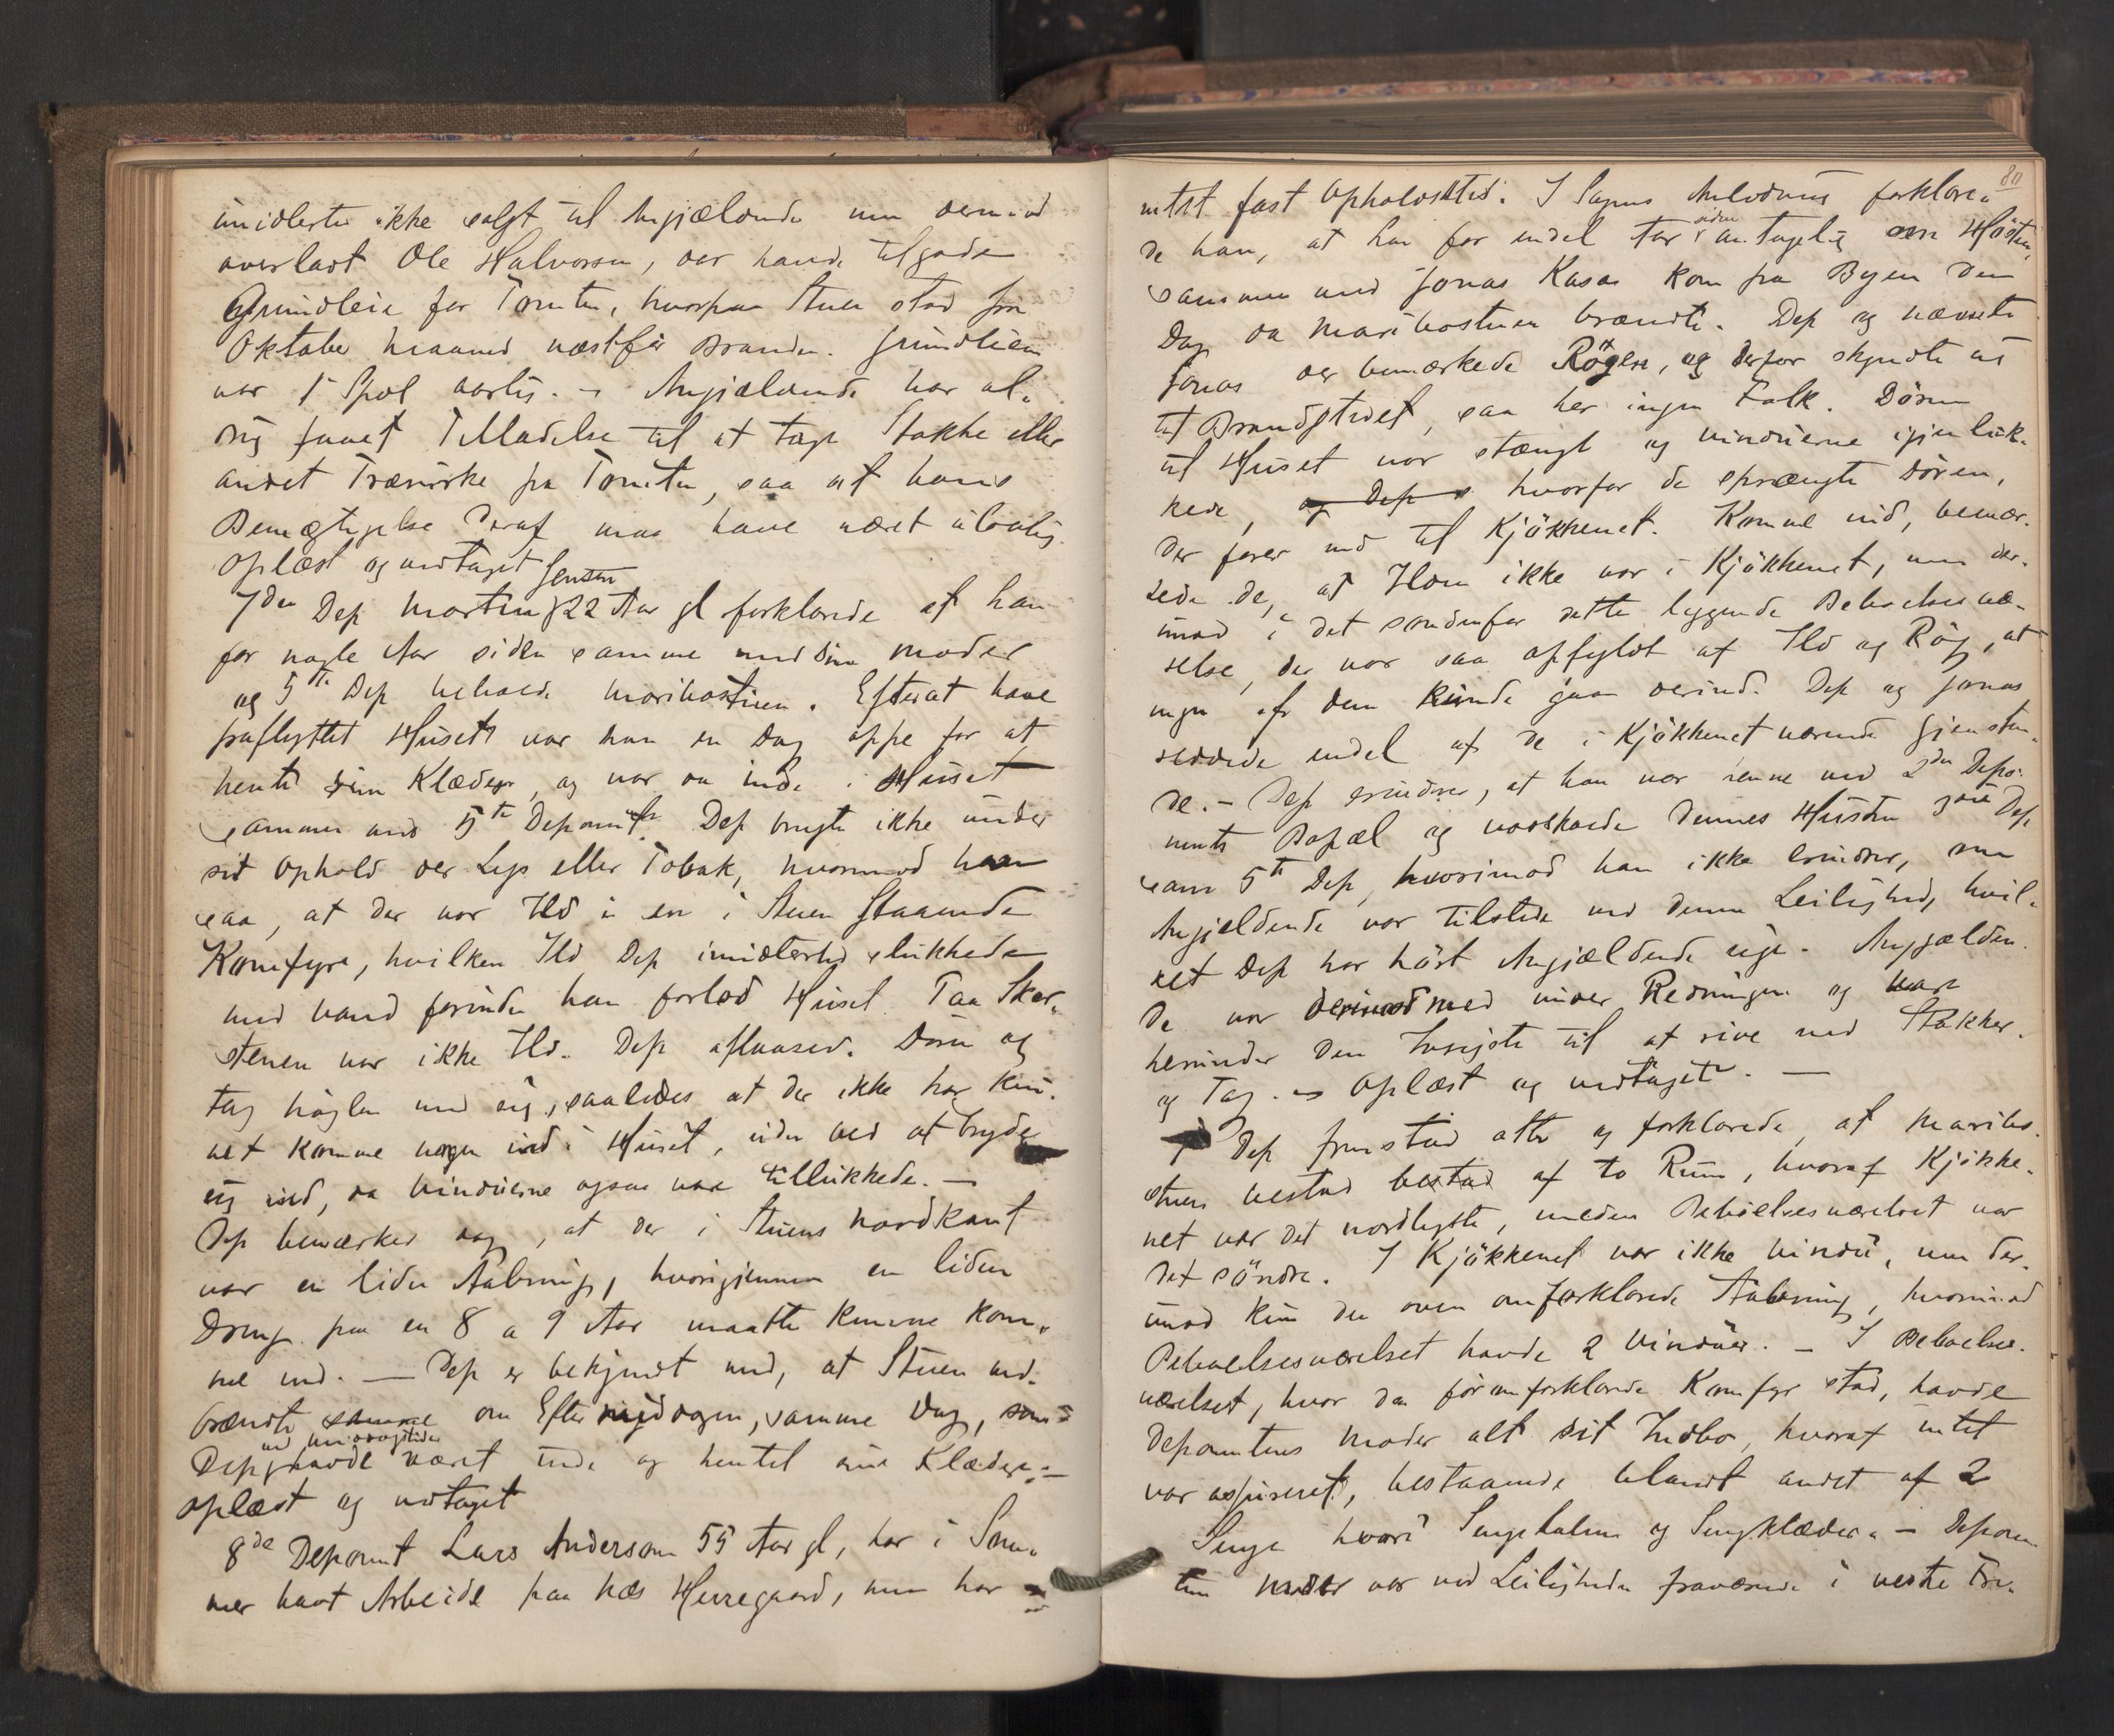 imidlertid ikke solgt til Angjældende men derimod
overladt Ole Halvorsen, der havde tilgode
Grundleie for Tomten, hvorpaa Stuen stod fra
Oktober Maaned næstfør Branden. Grundleien
var 1 Spd aarlig. – Angjældende har al-
drig faaet Tilladelse til at tage Stokke eller
andet Trævirke fra Tomten, saa at hans
Bemægtigelse deraf maa have været ulovlig.
Oplæst og vedtaget
Jensen
7de Dep Martin 22 Aar gl forklarede at han
for nogle Aar siden sammen med sin Moder
og 5te Dep beboede Maribostuen. Efterat have
fraflyttet Huset var han en Dag oppe for at
hente sine Klæder, og var da inde i Huset
sammen med 5te Deponent. Dep brugte ikke under
sit Ophold der Lys eller Tobak, hvorimod han
saa, at der var Ild i en i Stuen staaende
Komfyre, hvilken Ild Dep imidlertid slukkede
med Vand forinden han forlod Huset. Paa Skor-
stenen var ikke Ild. Dep aflaasede Døren og
tog Nøglen med sig, saaledes at der ikke har kun-
net komme nogen ind i Huset, uden ved at bryde
sig ind, da Vinduerne ogsaa vare tillukkede. –
Dep bemærker dog, at der i Stuens Nordkant
var en liden Aabning, hvorigjennem en liden
Dreng paa en 8 a 9 Aar maatte kunne kom-
me ind. – Dep er bekjendt med, at Stuen ned-
brændte samme om Eftermidagen, samme Dag, som
ved Middagstider
Dep havde været inde og hentet sine Klæder. –
Oplæst og vedtaget
8de Deponent Lars Anderson 55 Aar gl, har i Som-
mer havt Arbeide paa Næs Herregaard, men har
80
intet fast Opholdssted. I Sagens Anledning forklare-
de han, at han for endel Aar siden antagelig om Høsten,
sammen med Jonas Kasas kom fra Byen den
Dag da Maribostuen brændte. Dep og nævnte
Jonas der bemærkede Røgen, og derfor skyndte sig
til Brandstedet, saa her ingen Folk. Døren
til Huset var stængt og Vinduerne igjenluk-
kede, og Dep hvorfor de sprængte Døren,
der fører ind til Kjøkkenet. Komne ind, bemær-
kede de, at Ilden ikke var i Kjøkkenet, men der-
imod i det søndenfor dette liggende Beboelsesvæ-
relse, der var saa opfyldt af Ild og Røg, at
ingen af dem kunde gaa derind. Dep og Jonas
reddede endel af de i Kjøkkenet værende Gjenstan-
de. – Dep erindrer, at han var henne ved 2den Depo-
nents Bopæl og varskoede dennes Hustru 3die Dep
sam 5te Dep, hvorimod han ikke erindrer, om
Angjeldende var tilstede ved denne Leilighed, hvil-
ket Dep har hørt Angjældende sige. Angjælden-
de var derimod med under Redningen og var
herunder den Ivrigste til at rive ned Stokker
og Tag. – Oplæst og vedtaget. –
7 Dep fremstod atter og forklarede, at Maribo-
stuen bestod bestod af to Rum, hvoraf Kjøkke-
net var det nordligste, medens Beboelsesværelset var
det søndre. I Kjøkkenet var ikke Vindu, men der-
imod kun den oven omforklarede Aabning, hvorimod
Beboelsesværelset havde 2 Vinduer. – I Beboelses-
værelset, hvor den før omforklarede Komfyr stod, havde
Deponentens Moder alt sit Indbo, hvoraf intet
var assureret, bestaaende blandt andet af 2
Senge hvori Sengehalm og Sengklæder. – Deponen-
tens Moder var ved Leiligheden fraværende i